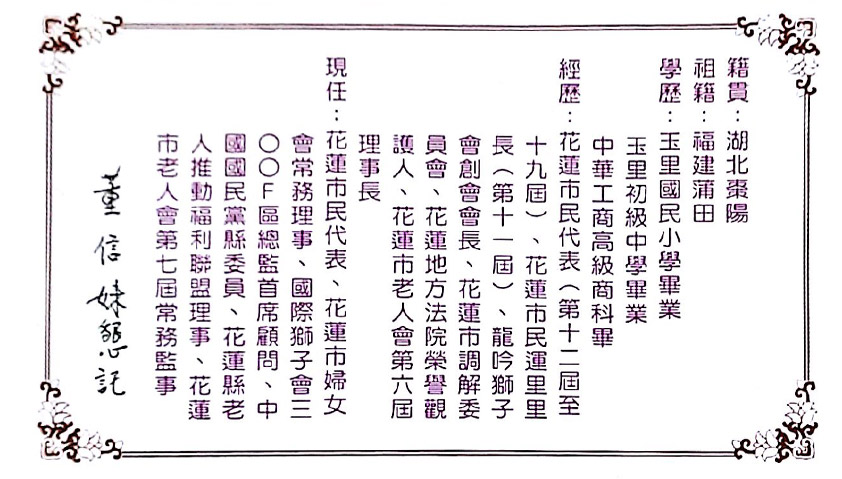 籍貫：湖北棗陽
祖籍：福建蒲田
學歷：玉里國民小學畢業
玉里初級中學畢業
中華工商高級商科畢
經歷：花蓮市民代表（第十二屆至
十九屆）、花蓮市民運里里
長（第十一屆）、龍吟獅子
會創會會長、花蓮市調解委
員會、花蓮地方法院榮譽觀
護人、花蓮市老人會第六屆
理事長
現任：花蓮市民代表、花蓮市婦女
會常務理事、國際獅子會三
〇〇F區總監首席顧問、中
國國民黨縣委員、花蓮縣老
人推動福利聯盟理事、花蓮
市老人會第七屆常務監事
董信妹懇託